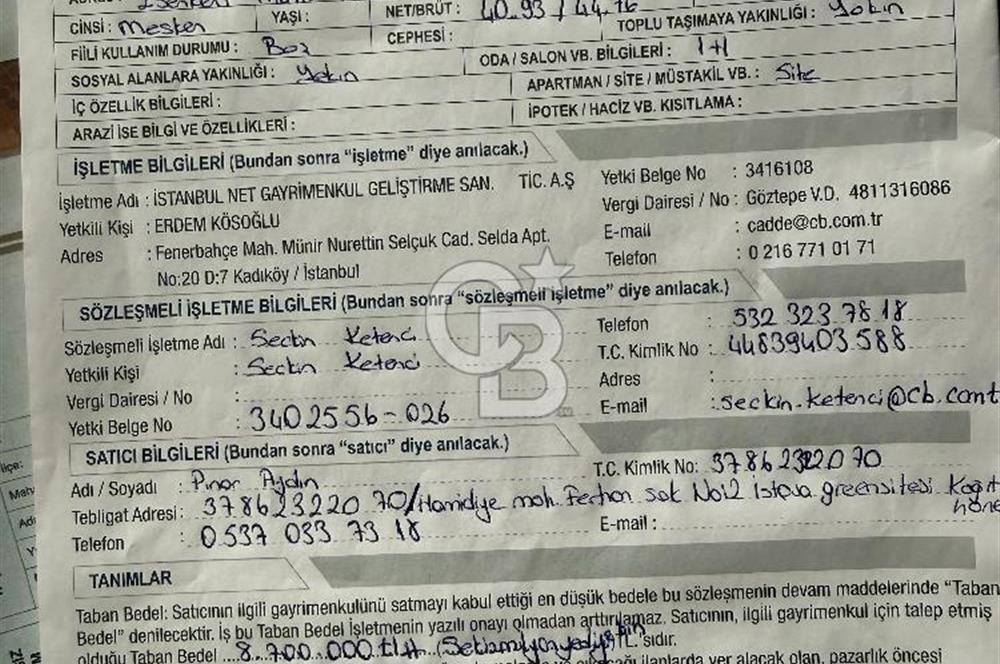 CİNSİ: Mesken YAŞI: NET/BRÜT: 40.93 / 44.76 TOPLU TAŞIMAYA YAKINLIĞI: Yakın
FİİLİ KULLANIM DURUMU: Boş CEPHESİ:
ODA / SALON VB. BİLGİLERİ: 1+1
SOSYAL ALANLARA YAKINLIĞI: Yakın APARTMAN / SİTE / MÜSTAKİL VB.: Site
İÇ ÖZELLİK BİLGİLERİ: İPOTEK / HACİZ VB. KISITLAMA:
ARAZİ İSE BİLGİ VE ÖZELLİKLERİ:
İŞLETME BİLGİLERİ (Bundan sonra “işletme” diye anılacak.)
İşletme Adı : İSTANBUL NET GAYRİMENKUL GELİŞTİRME SAN. TİC. A.Ş Yetki Belge No : 3416108
Yetkili Kişi : ERDEM KÖSOĞLU Vergi Dairesi / No : Göztepe V.D. 4811316086
Adres : Fenerbahçe Mah. Münir Nurettin Selçuk Cad. Selda Apt. E-mail : cadde@cb.com.tr
No:20 D:7 Kadıköy / İstanbul Telefon : 0 216 771 01 71
SÖZLEŞMELİ İŞLETME BİLGİLERİ (Bundan sonra “sözleşmeli işletme” diye anılacak.)
Sözleşmeli İşletme Adı : Seckin Ketenci Telefon : 532 323 78 18
Yetkili Kişi : Seckin Ketenci T.C. Kimlik No : 44839403588
Vergi Dairesi / No : Adres :
Yetki Belge No : 3402556-026 E-mail : seckin.ketenci@cb.com.t
SATICI BİLGİLERİ (Bundan sonra “satıcı” diye anılacak.)
Adı / Soyadı : Pınar Aydın T.C. Kimlik No: 37862322070
Tebligat Adresi : 37862322070/Hamidiye mah. Ferhan sok No:2 istova greensitesi Kağıt
hane
Telefon : 0537 033 73 18 E-mail :
TANIMLAR
Taban Bedel: Satıcının ilgili gayrimenkulünü satmayı kabul ettiği en düşük bedele bu sözleşmenin devam maddelerinde “Taban
Bedel” denilecektir. İş bu Taban Bedel İşletmenin yazılı onayı olmadan arttırılamaz. Satıcının, ilgili gayrimenkul için talep etmiş
olduğu Taban Bedel 8.700.000 TL'dır.
ilanlarda yer alacak olan, pazarlık öncesi
CB
ilçe: